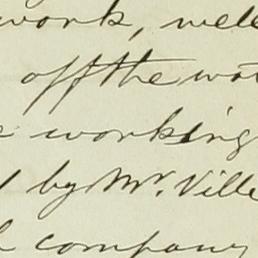 work, wele
off the wat
working
by Mr. Ville
company